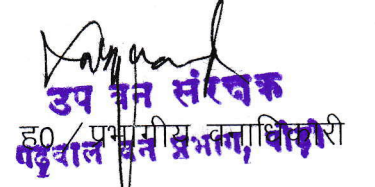 उप वन संरक्षक
ह० / प्रभागीय वनाधिकारी
गढ़वाल वन प्रभाग, पौड़ी